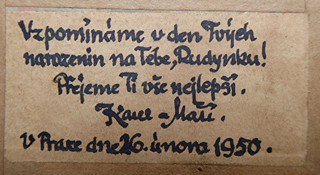 Vzpomínáme v den Tvých
narozenin na Tebe, Rudynku!
Přejeme Ti vše nejlepší.
Karel - Máši.
V Praze dne 26. února 1950.